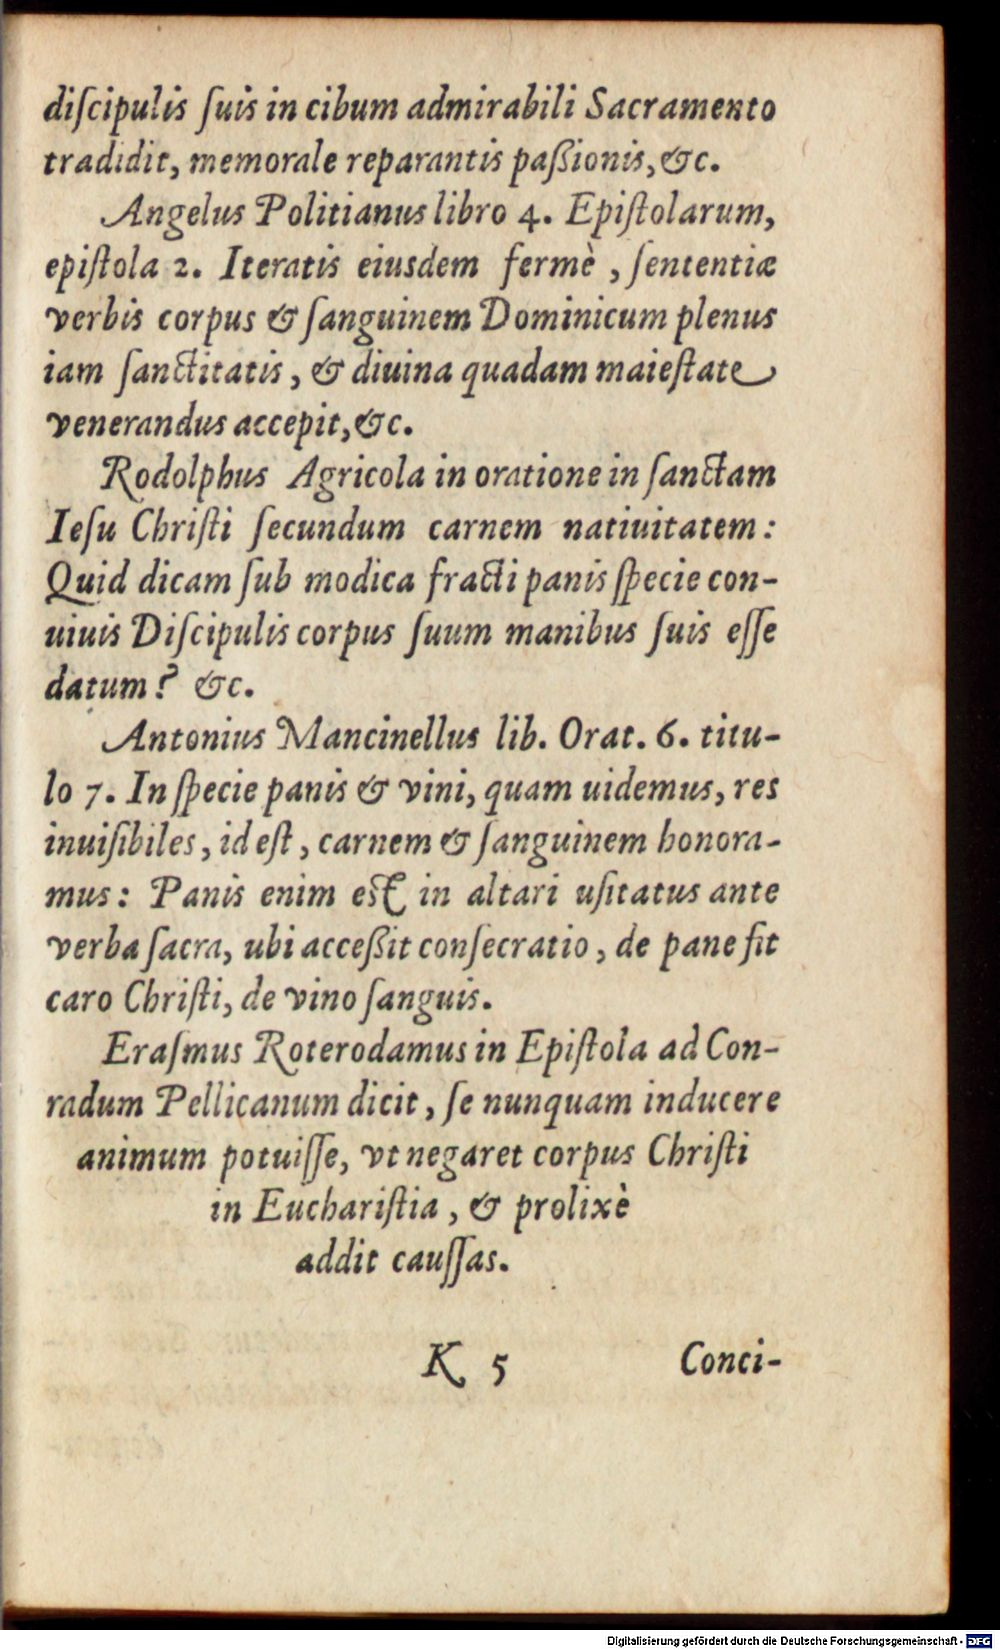 diſcipulis ſuis in cibum admirabili Sacramento
tradidit, memorale reparantis paßionis, &c.
Angelus Politianus libro 4. Epiſtolarum,
epiſtola 2. Iteratis eiusdem fermè, ſententiæ
verbis corpus & ſanguinem Dominicum plenus
iam ſanctitatis, & diuina quadam maieſtate
venerandus accepit, &c.
Rodolphus Agricola in oratione in ſanctam
Ieſu Chriſti ſecundum carnem natiuitatem:
Quid dicam ſub modica fracti panis ſpecie con-
uiuis Diſcipulis corpus ſuum manibus ſuis eſſe
datum? &c.
Antonius Mancinellus lib. Orat. 6. titu-
lo 7. In ſpecie panis & vini, quam uidemus, res
inuiſibiles, id eſt, carnem & ſanguinem honora-
mus: Panis enim est in altari uſitatus ante
verba ſacra, ubi acceßit conſecratio, de pane fit
caro Chriſti, de vino ſanguis.
Eraſmus Roterodamus in Epiſtola ad Con-
radum Pellicanum dicit, ſe nunquam inducere
animum potuiſſe, vt negaret corpus Chriſti
in Euchariſtia, & prolixè
addit cauſſas.
K 5 Conci-
Digitalisierung gefördert durch die Deutsche Forschungsgemeinschaft - DFG